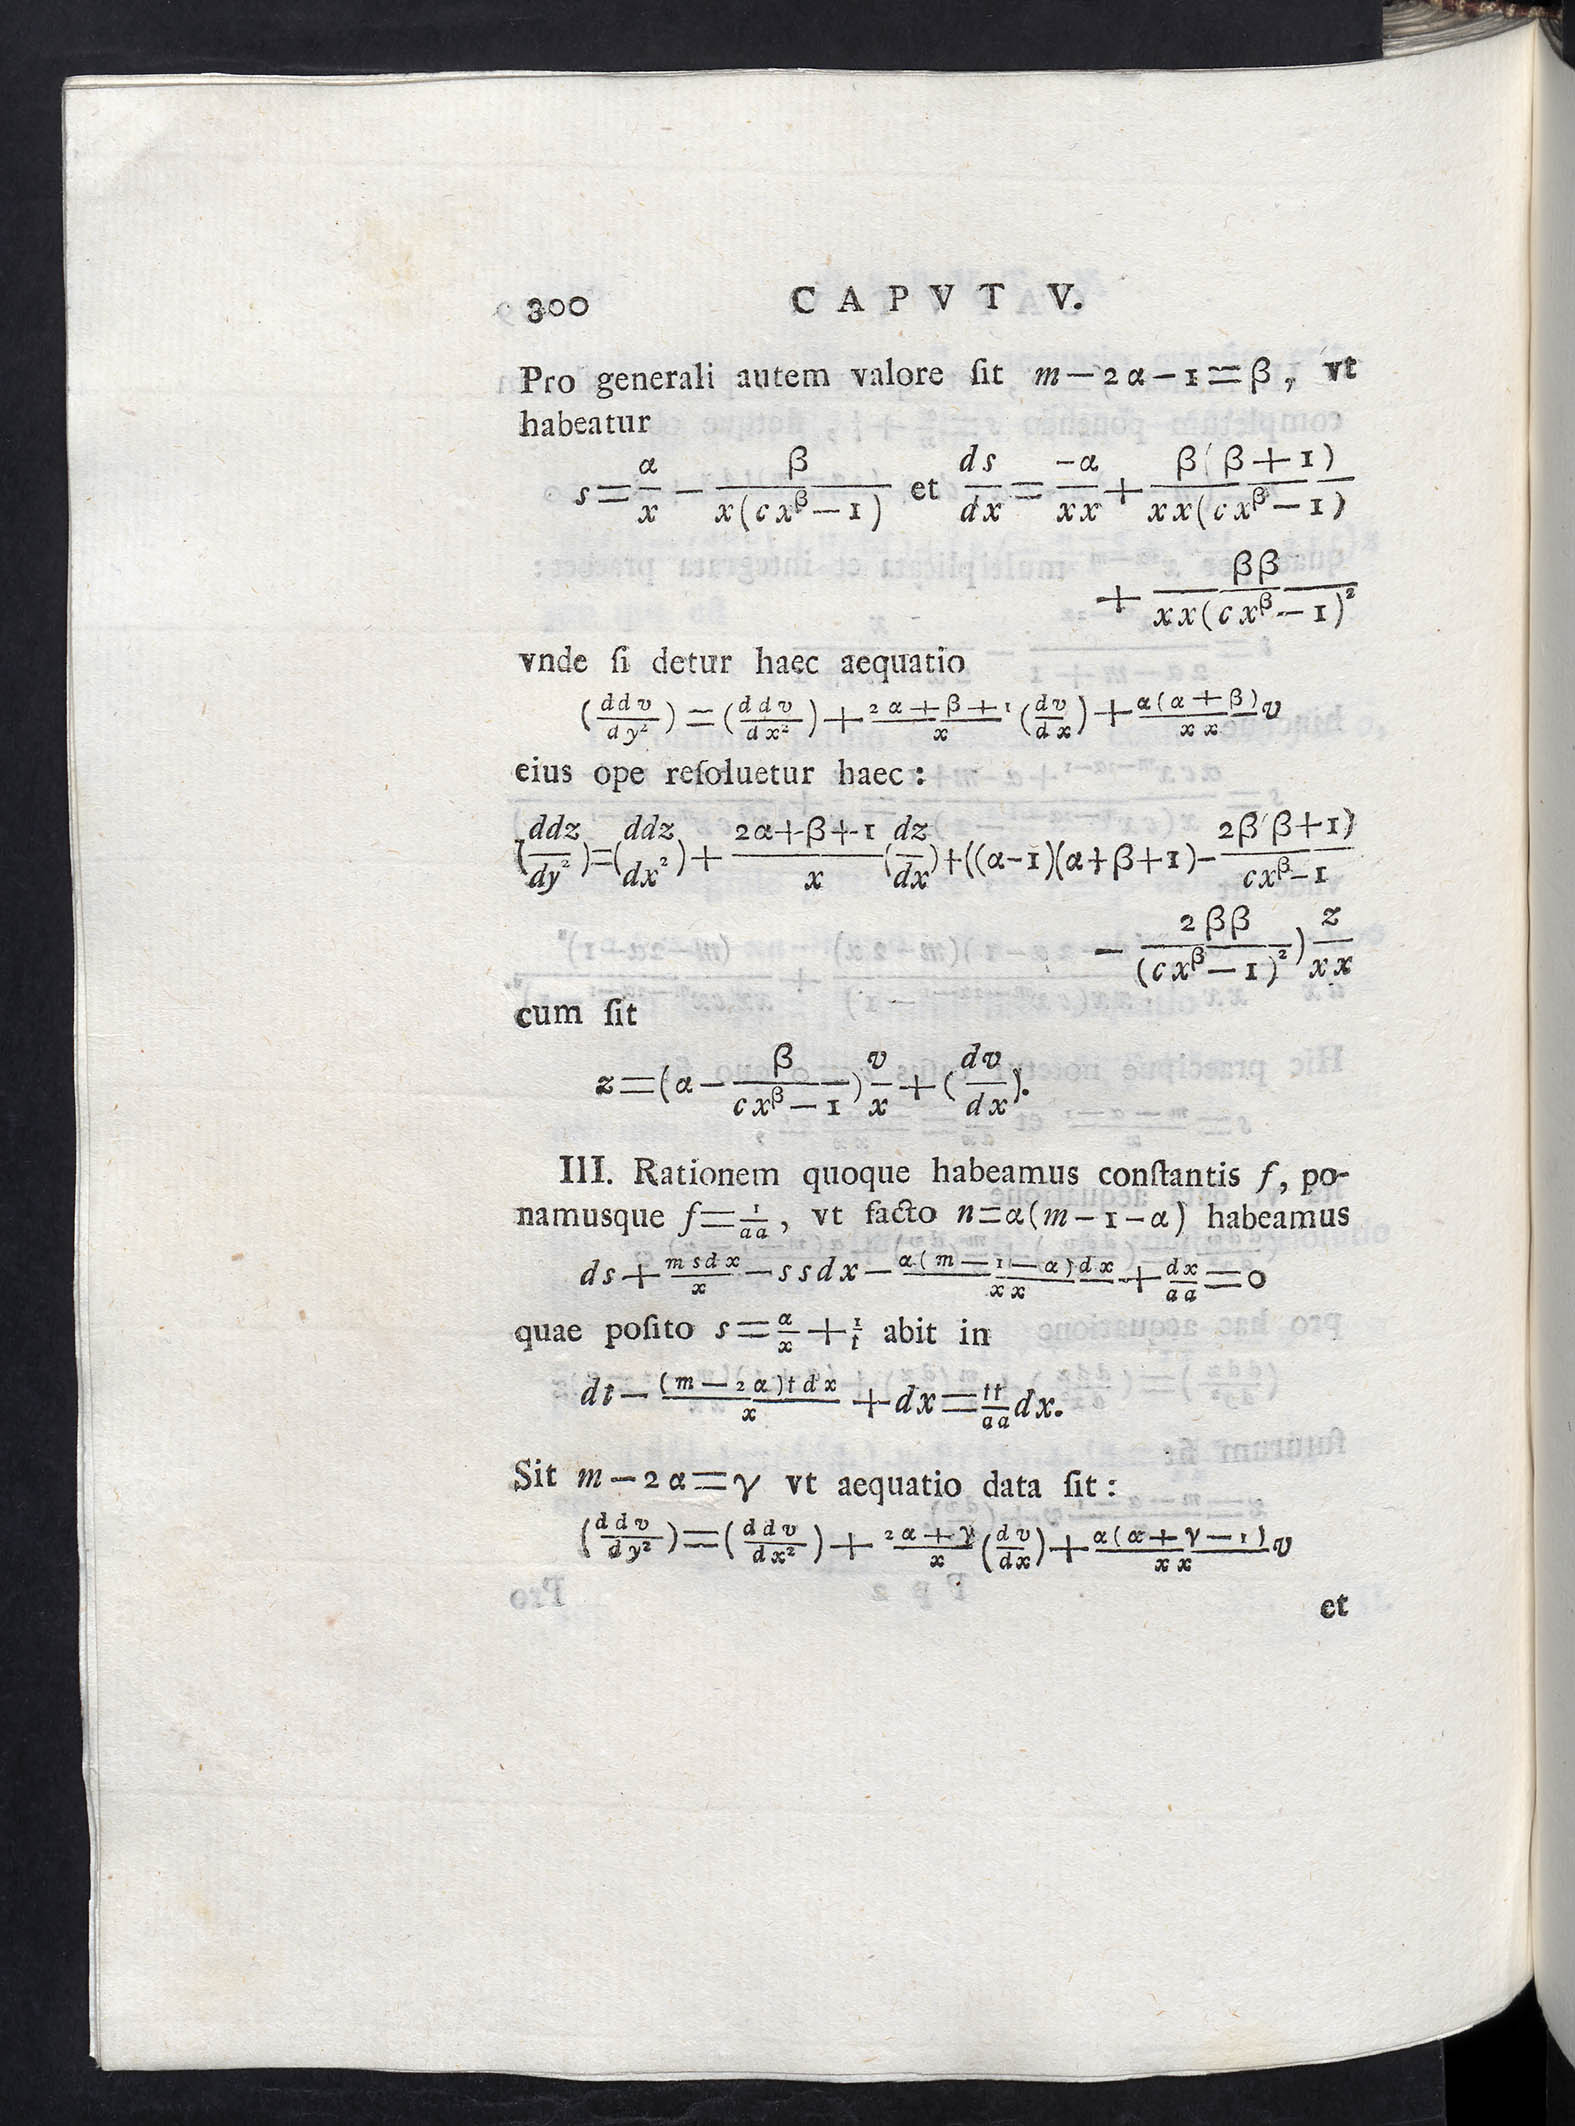 300 CAPVT V.
Pro generali autem valore ſit m − 2α − 1 = β, vt
habeatur
s = α/x − β/(x(cx^β − 1)) et ds/dx = −α/xx + β(β+1)/(xx(cx^β − 1))
+ ββ/(xx(cx^β − 1)²)
vnde ſi detur haec aequatio
(ddv/dy²) = (ddv/dx²) + (2α+β+1)/x (dv/dx) + α(α+β)/xx v
eius ope reſoluetur haec:
(ddz/dy²) = (ddz/dx²) + (2α+β+1)/x (dz/dx) + ((α−1)(α+β+1) − 2β(β+1)/(cx^β − 1)
− 2ββ/(cx^β − 1)²) z/xx
cum ſit
z = (α − β/(cx^β − 1)) v/x + (dv/dx).
III. Rationem quoque habeamus conſtantis f, po-
namusque f = 1/aa, vt facto n = α(m − 1 − α) habeamus
ds + msdx/x − ssdx − α(m−1−α)dx/xx + dx/aa = 0
quae poſito s = α/x + 1/t abit in
dt − (m−2α)tdx/x + dx = tt/aa dx.
Sit m − 2α = γ vt aequatio data ſit:
(ddv/dy²) = (ddv/dx²) + (2α+γ)/x (dv/dx) + α(α+γ−1)/xx v
et